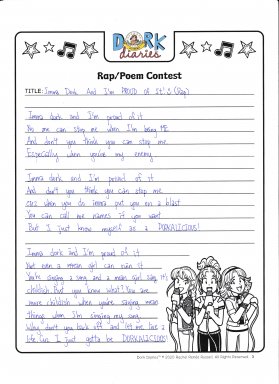 DORK
diaries
Rap/Poem Contest
TITLE: Imma Dork And I'm PROUD OF It! :) (Rap)
Imma dork and I'm proud of it
No one can stop me when I'm being ME
And don't you think you can stop me
Especially when you're my enemy
Imma dork and I'm proud of it
And don't you think you can stop me
cuz when you do imma put you on a blast
You can call me names if you want
But I just know myself as a DORKALICIOUS!
Imma dork and I'm proud of it
Not even a mean girl can ruin it
You're singing a song and a mean girl says it's
childish But you know what? You are
more childish when you're saying mean
things when I'm singing my song
Why don't you back off and let me live
life cuz I just gotta be DORKALICIOUS!
Dork Diaries™ © 2020 Rachel Renée Russell. All Rights Reserved.